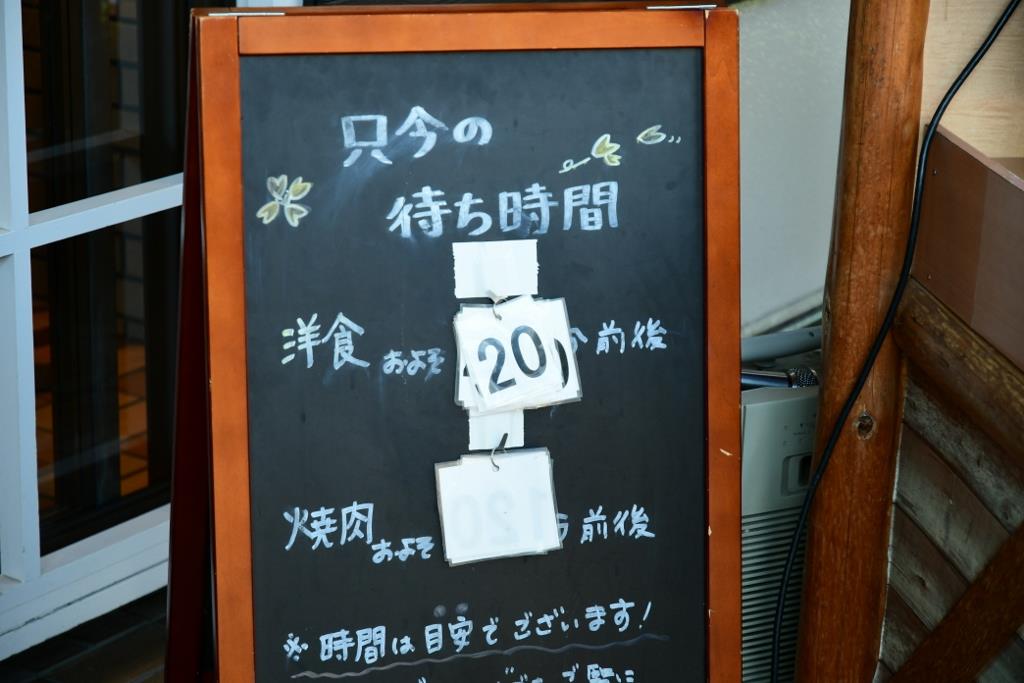 只今の
待ち時間
洋食 およそ 20 分前後
焼肉 およそ 分前後
※ 時間は目安でございます!